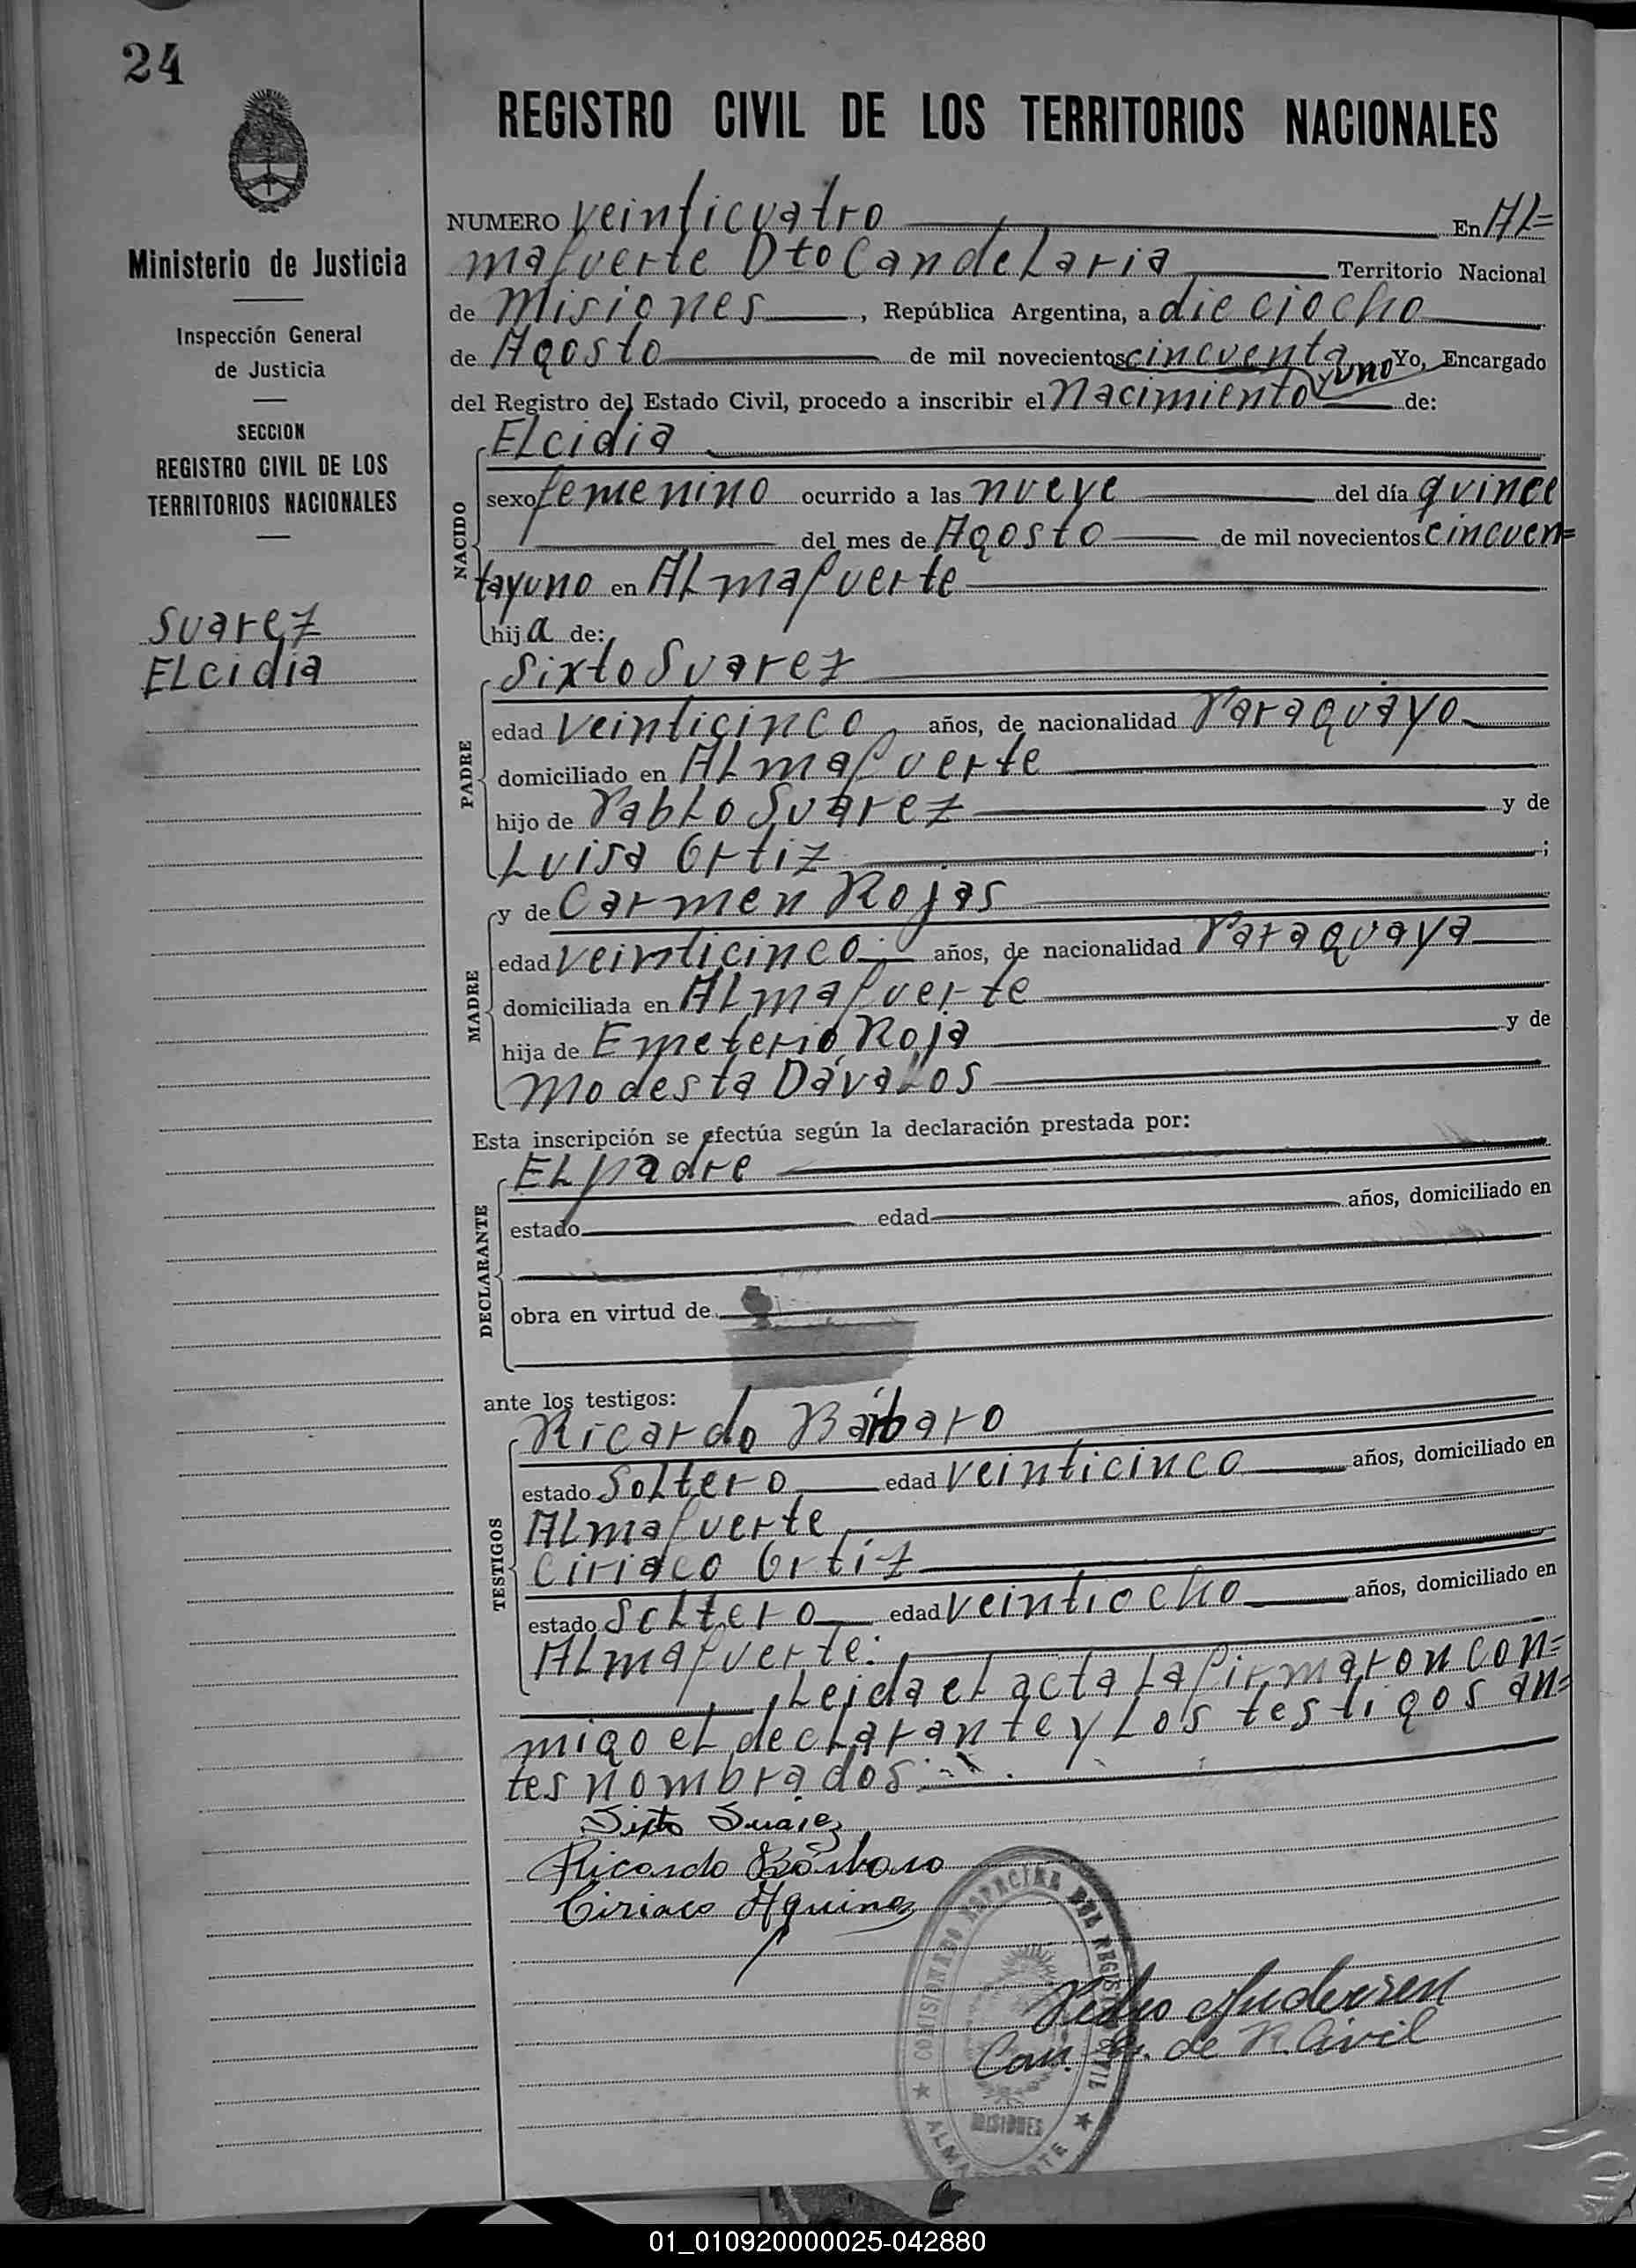 24
REGISTRO CIVIL DE LOS TERRITORIOS NACIONALES
Ministerio de Justicia
Inspección General
de Justicia
SECCION
REGISTRO CIVIL DE LOS
TERRITORIOS NACIONALES
Suarez
Elcidia
NUMERO veinticuatro En Al=
mafuerte Dto Candelaria Territorio Nacional
de Misiones, República Argentina, a dieciocho
de Agosto de mil novecientos cincuenta y uno Yo, Encargado
del Registro del Estado Civil, procedo a inscribir el Nacimiento de:
NACIDO
Elcidia
sexo femenino ocurrido a las nueve del día quince
del mes de Agosto de mil novecientos cincuen=
tayuno en Almafuerte
hija de:
PADRE
Sixto Suarez
edad veinticinco años, de nacionalidad Paraguayo
domiciliado en Almafuerte
hijo de Pablo Suarez y de
Luisa Ortiz ;
MADRE
y de Carmen Rojas
edad veinticinco años, de nacionalidad Paraguaya
domiciliada en Almafuerte
hija de Emeterio Roja y de
Modesta Dávalos
Esta inscripción se efectúa según la declaración prestada por:
DECLARANTE
El padre
estado edad años, domiciliado en
obra en virtud de
ante los testigos:
TESTIGOS
Ricardo Bárbaro
estado Soltero edad veinticinco años, domiciliado en
Almafuerte
Ciriaco Ortiz
estado Soltero edad veintiocho años, domiciliado en
Almafuerte:
Leida el acta la firmaron con=
migo el declarante y los testigos an=
tes nombrados
Sixto Suarez
Ricardo Bárbaro
Ciriaco Aquino
Pedro Andersen
de R. Civil
COMISIONADO DEL REGISTRO CIVIL
MISIONES
ALMAFUERTE
01_010920000025-042880